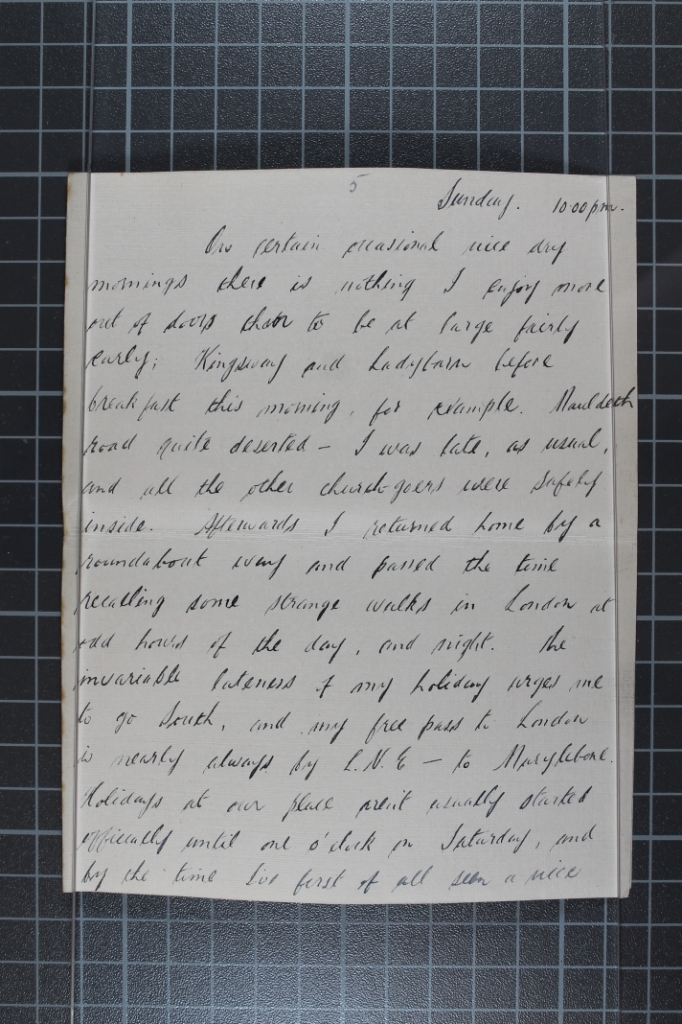 5
Sunday. 10.00 p.m.
On certain occasional nice dry
mornings there is nothing I enjoy more
out of doors than to be at large fairly
early; Kingsway and Ladybarn before
breakfast this morning, for example. Mauldeth
road quite deserted – I was late, as usual,
and all the other church-goers were safely
inside. Afterwards I returned home by a
roundabout way and passed the time
recalling some strange walks in London at
odd hours of the day, and night. The
invariable lateness of my holiday urges me
to go South, and my free pass to London
is nearly always by L.N.E – to Marylebone.
Holidays at our place aren't usually started
officially until one o'clock on Saturday, and
by the time I've first of all seen a nice